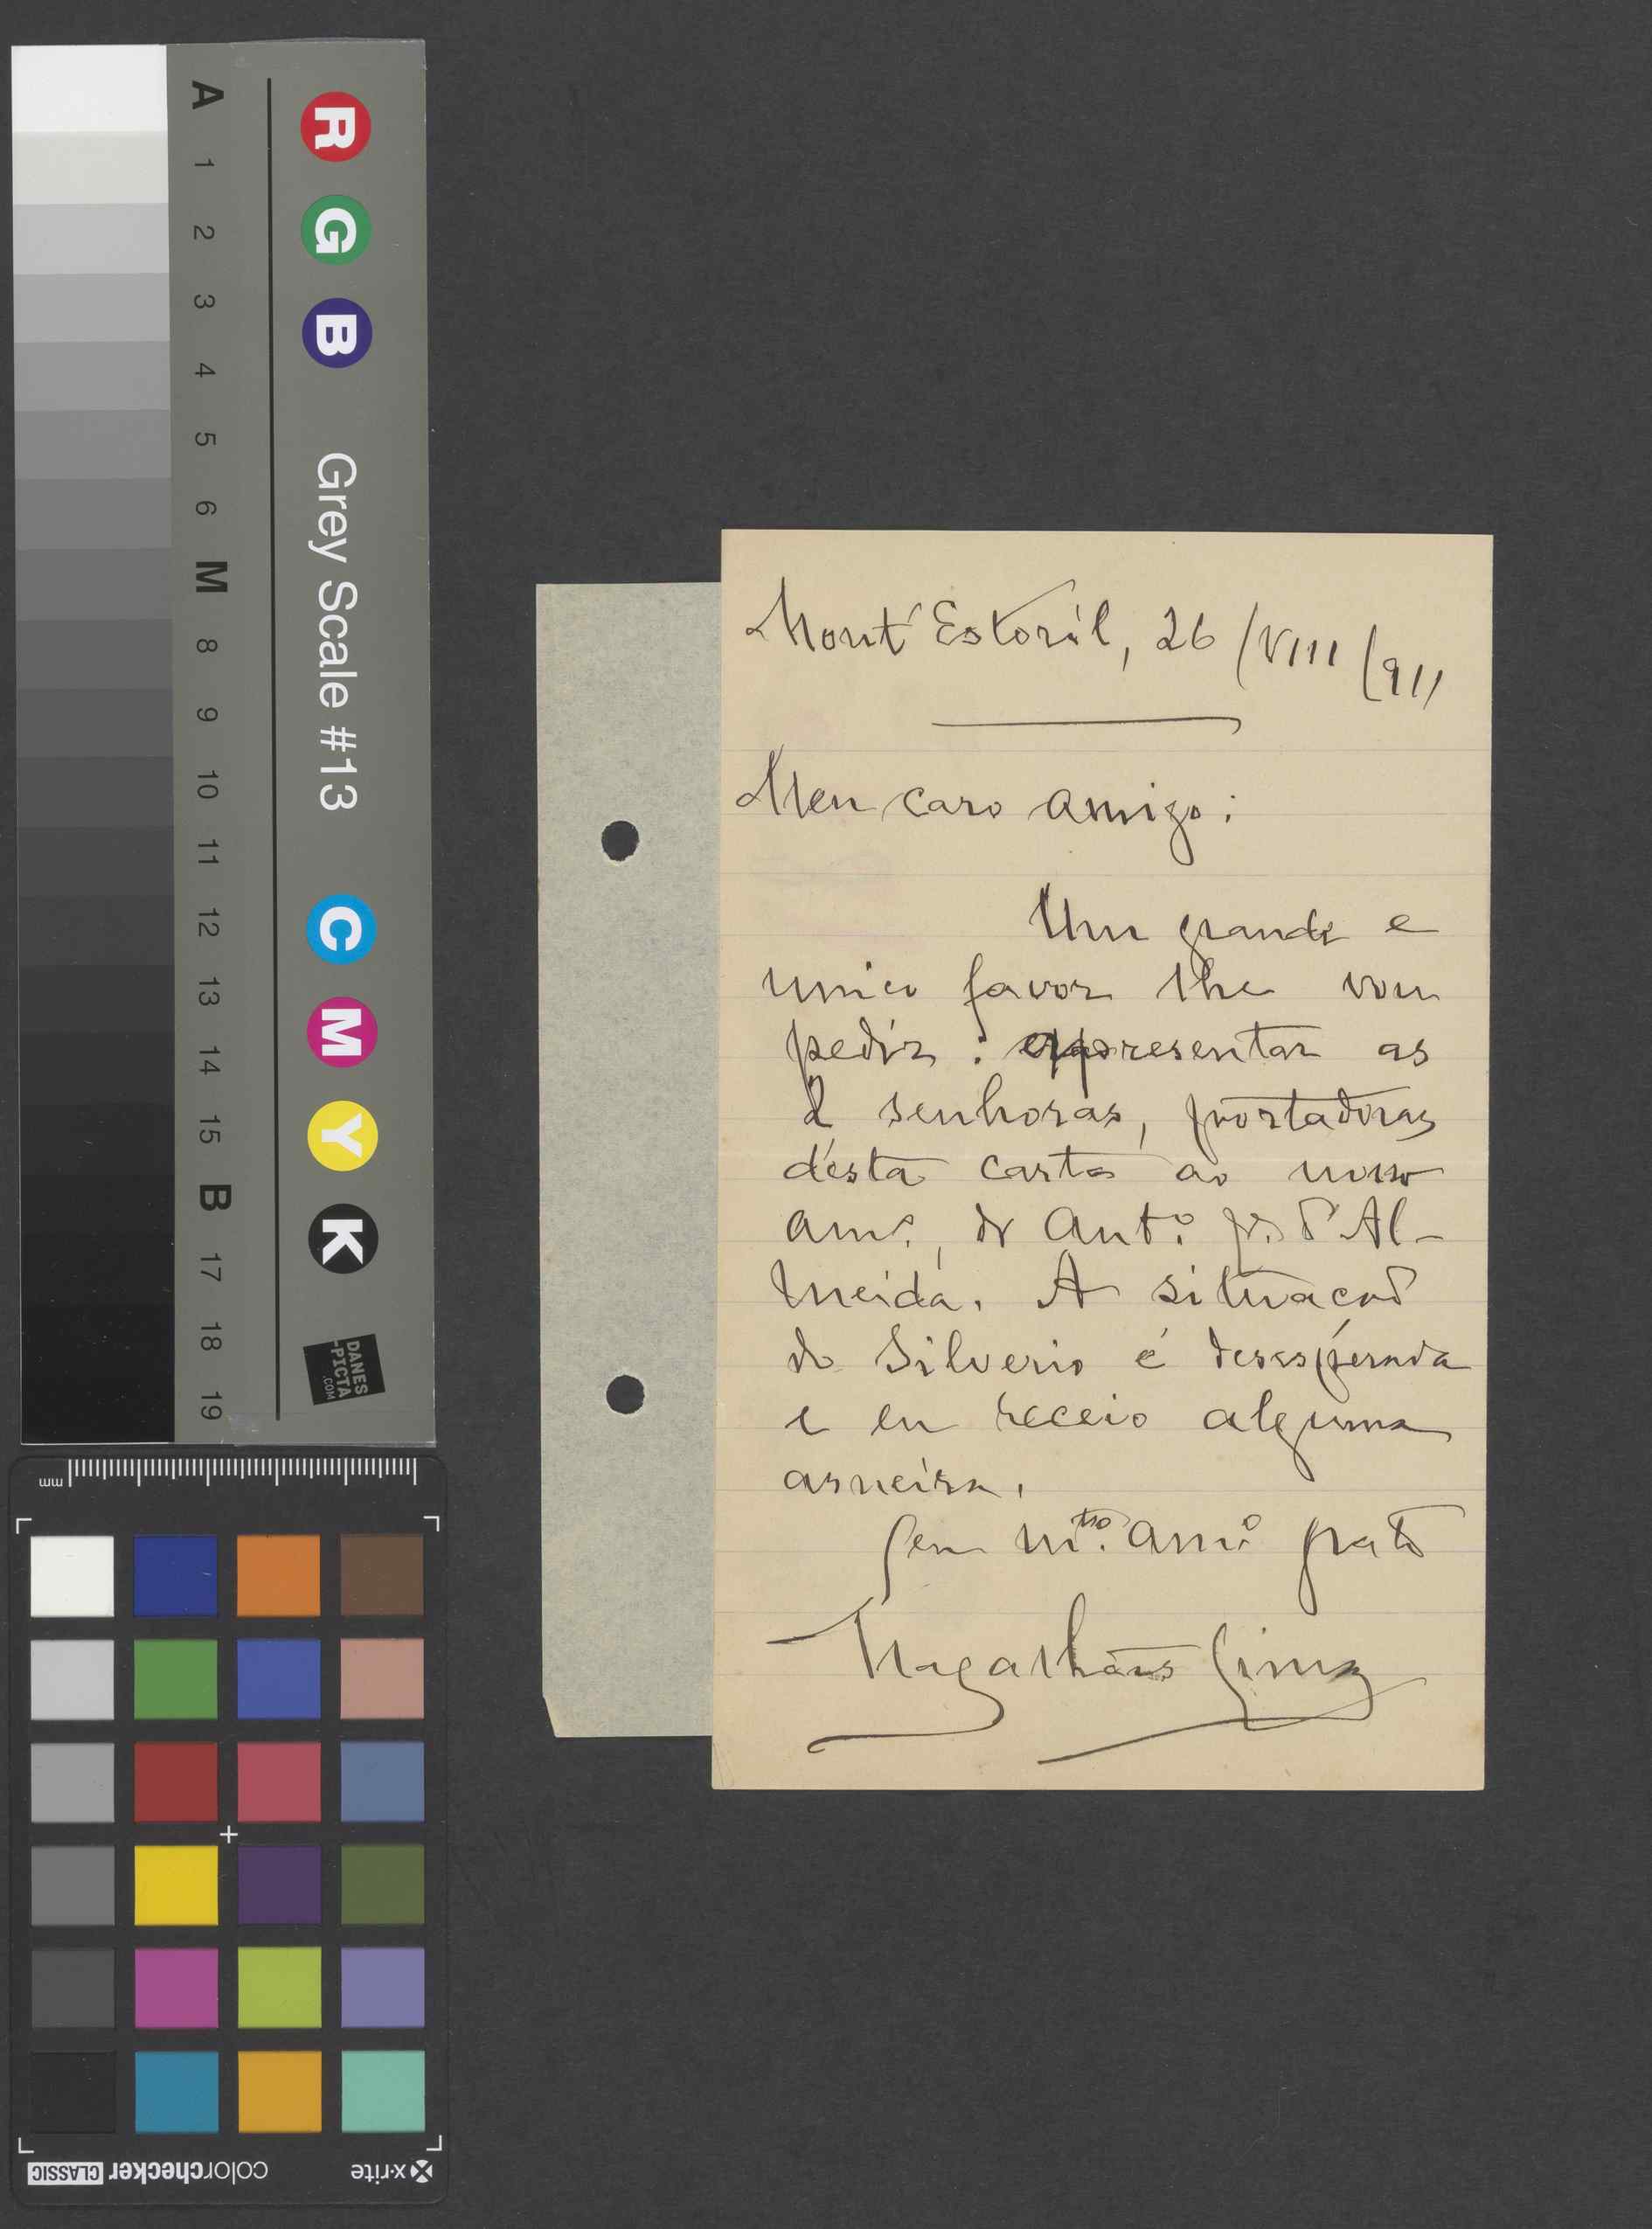 A 1 2 3 4 5 6 M 8 9 10 11 12 13 14 15 B 17 18 19
R G B Grey Scale #13 C M Y K
DANES
-PICTA
.COM
mm
colorchecker CLASSIC
x-rite
Mont' Estoril, 26/VIII/911
Meu caro amigo:
Um grande e
unico favor lhe vou
pedir: apresentar as
2 senhoras, portadoras
d'esta carta ao nosso
am.º, dr Ant.º J. d'Al-
meida. A situaçaõ
do Silverio é desesperada
e eu receio alguma
asneira.
Seu m.to am.º grato
Magalhães Lima